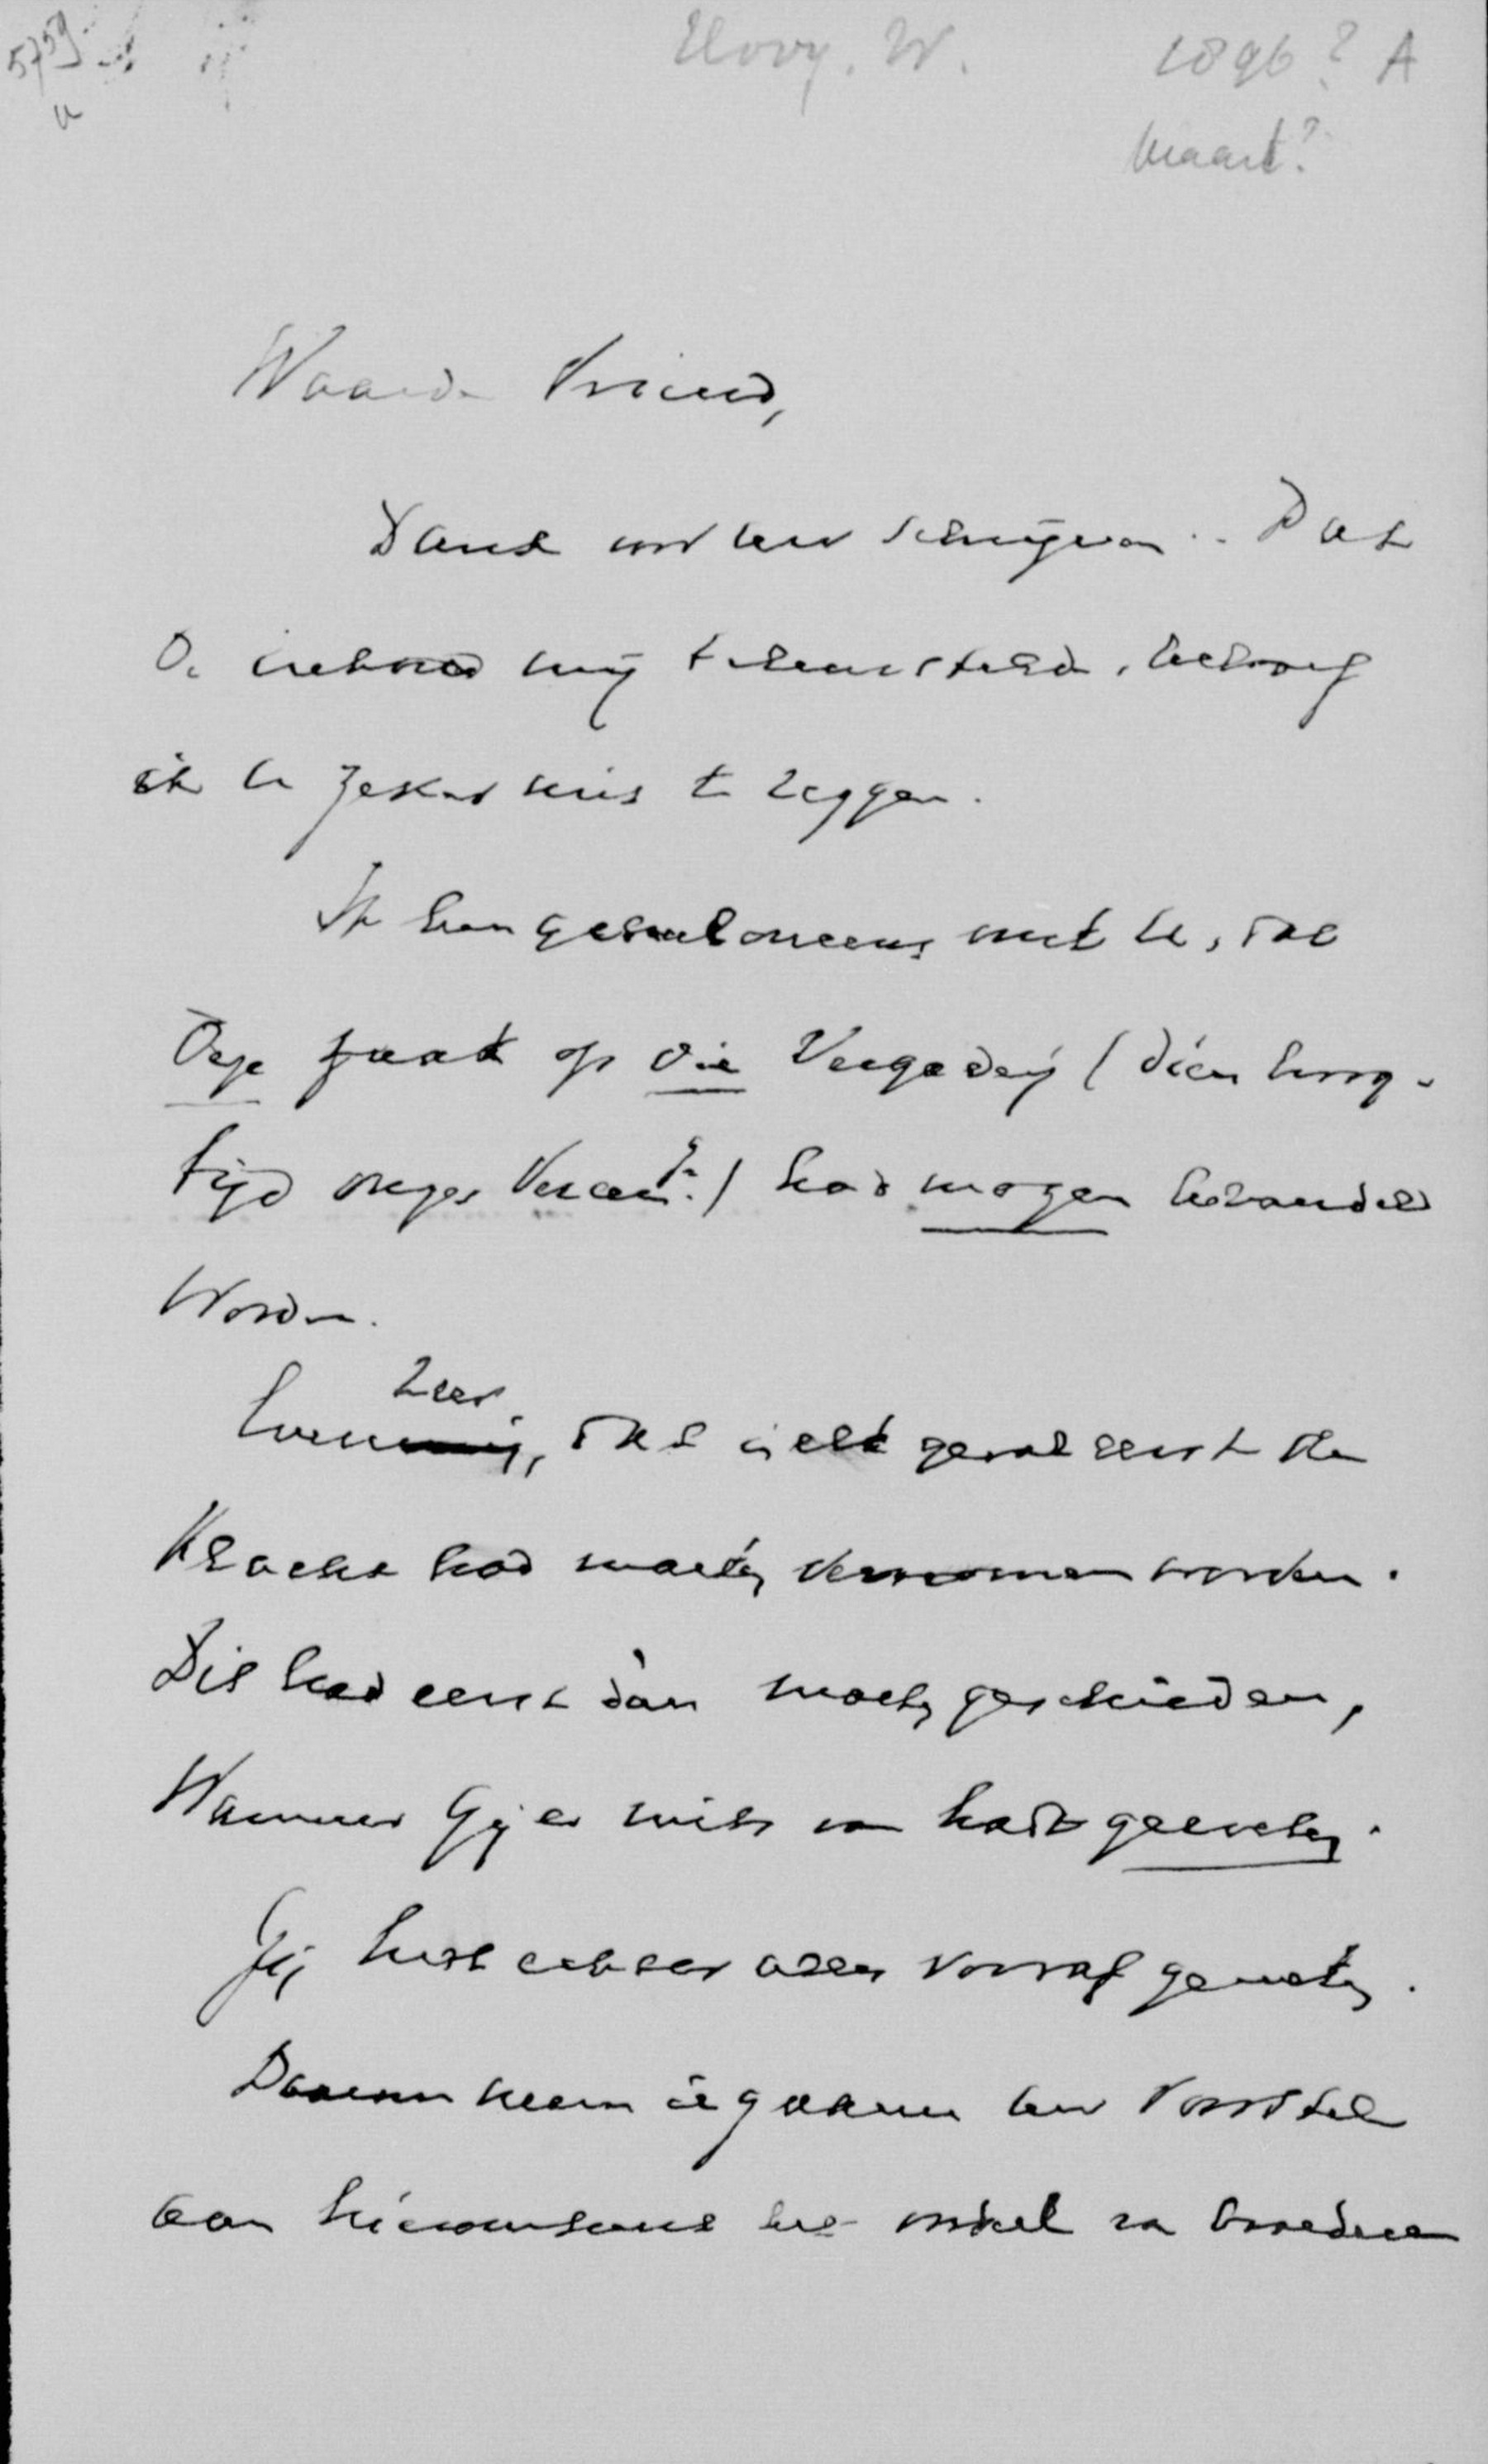 5759
Hovy. W. 1896? A
Maart?
Waarde Vriend,
Dank voor uw schrijven. Dat
De inhoud mij teleurstelde, behoef
ik U zeker niet te zeggen.
Ik ben geheel oneens met U, dat
Deze zaak op die Vergadering (dien hoog-
tijd onzer Vereen.) had mogen behandeld
Worden.
zeer
dat in elk geval eerst de
Klacht had moeten vernomen worden.
Dit had eerst dàn moeten geschieden,
Wanneer Gij er niets van hadt geweten.
Gij hadt echter alles vooraf geweten.
Daarom neem ik gaarne uw voorstel
aan